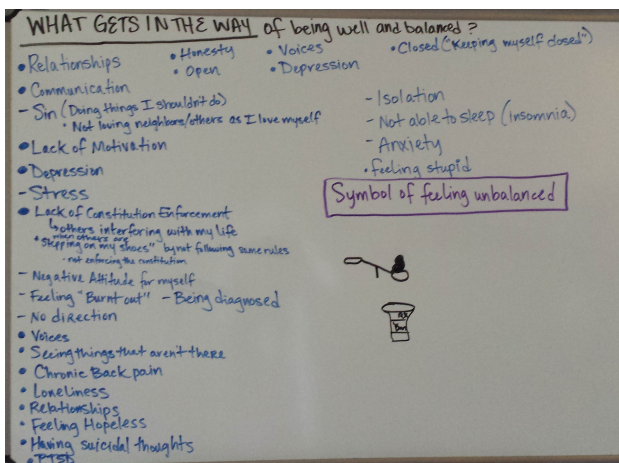 WHAT GETS IN THE WAY of being well and balanced?
• Relationships
• Honesty
• Open
• Voices
• Depression
• Closed ("Keeping myself closed")
• Communication
- Sin (Doing things I shouldn't do)
• Not loving neighbors/others as I love myself
• Lack of Motivation
• Depression
- Stress
• Lack of Constitution Enforcement
↳ others interfering with my life
• when others are
"Stepping on my shoes" by not following same rules
• not enforcing the constitution
- Negative Attitude for myself
- Feeling "Burnt out" - Being diagnosed
- No direction
• Voices
• Seeing things that aren't there
• Chronic Back pain
• Loneliness
• Relationships
• Feeling Hopeless
• Having suicidal thoughts
• PTSD
- Isolation
- Not able to sleep (insomnia)
- Anxiety
• Feeling stupid
Symbol of feeling unbalanced